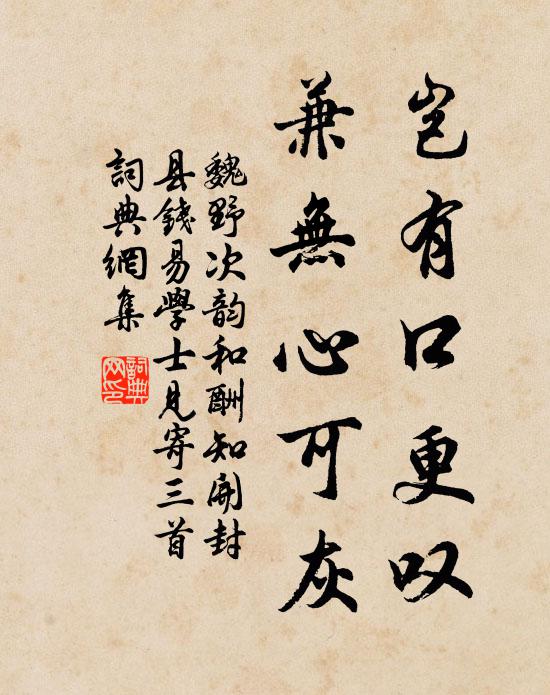 岂有口更叹
兼無心可灰
魏野次韵和酬知開封
县錢易學士見寄三首
詞典網集
詞典网印